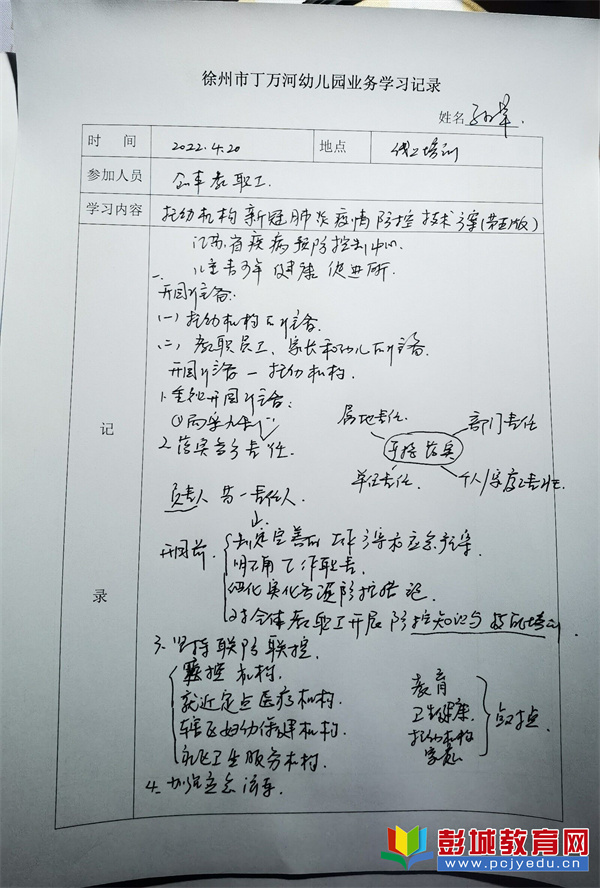 徐州市丁万河幼儿园业务学习记录
姓名
时 间 2022.4.20 地点 线上培训
参加人员 全体教职工
学习内容 托幼机构新冠肺炎疫情防控技术方案(第五版)
江苏省疾病预防控制中心
儿童青少年健康促进所.
一、
开园准备:
(一) 托幼机构的准备.
(二) 教职员工、家长和幼儿的准备.
开园准备 — 托幼机构.
1. 开园准备:
①两案九制
2. 落实多方责任.
属地责任 部门责任
落实
单位责任. 个人/家庭责任
负责人 第一责任人
开园前. 制定完善的工作方案和应急预案.
明确工作职责.
细化实化各项防控措施.
对全体教职工开展防控知识与技能培训.
3. 坚持联防联控.
疾控机构.
就近定点医疗机构.
辖区妇幼保健机构.
社区卫生服务机构.
教育
卫生健康
托幼机构
家庭
点对点
记
录
4. 加强应急
彭城教育网
www.pcjyedu.cn